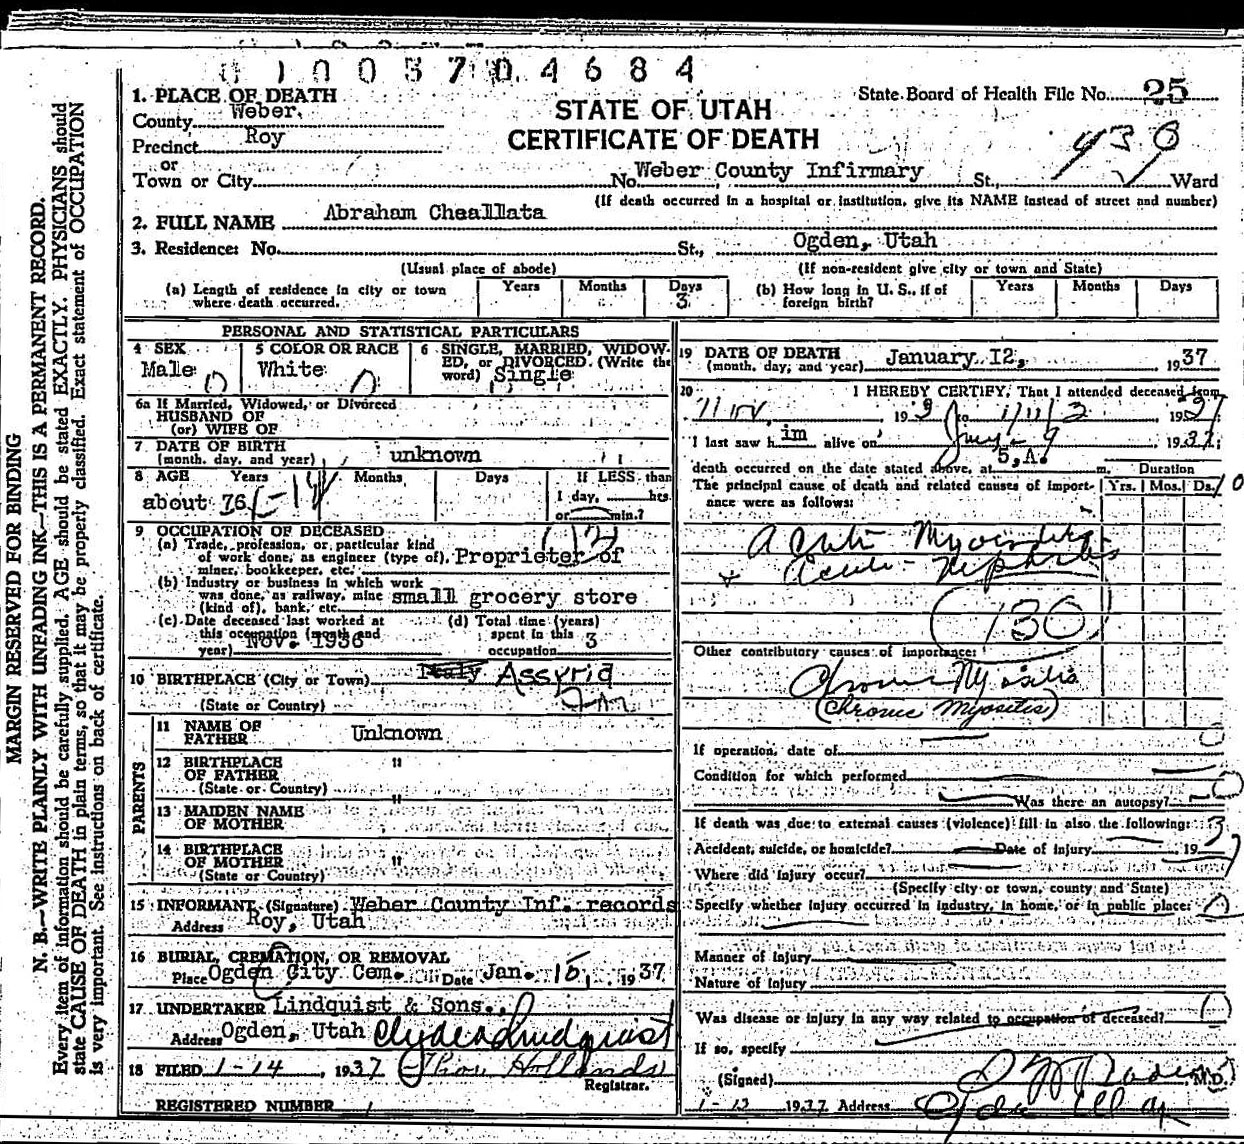 0 1 0 0 3 7 0 4 6 8 4
1. PLACE OF DEATH
County Weber.
Precinct Roy
or
Town or City
STATE OF UTAH
CERTIFICATE OF DEATH
State Board of Health File No. 25
No. Weber County Infirmary St., Ward
(If death occurred in a hospital or institution, give its NAME instead of street and number)
2. FULL NAME Abraham Cheallata
3. Residence: No. St., Ogden, Utah
(Usual place of abode) (If non-resident give city or town and State)
(a) Length of residence in city or town where death occurred. Years Months Days 3
(b) How long in U. S., if of foreign birth? Years Months Days
PERSONAL AND STATISTICAL PARTICULARS
4 SEX Male
5 COLOR OR RACE White
6 SINGLE, MARRIED, WIDOWED, or DIVORCED. (Write the word) Single
6a If Married, Widowed, or Divorced
HUSBAND OF
(or) WIFE OF
7 DATE OF BIRTH
(month, day, and year) unknown
8 AGE Years Months Days If LESS than
about 76 1 day, hrs.
or min.?
9 OCCUPATION OF DECEASED
(a) Trade, profession, or particular kind
of work done, as engineer (type of), Proprieter of
miner, bookkeeper, etc.
(b) Industry or business in which work
was done, as railway, mine small grocery store
(kind of), bank, etc.
(c) Date deceased last worked at
this occupation (month and
year) Nov. 1936
(d) Total time (years)
spent in this 3
occupation
10 BIRTHPLACE (City or Town) Italy Assyria
(State or Country)
PARENTS
11 NAME OF
FATHER Unknown
12 BIRTHPLACE "
OF FATHER
(State or Country)
13 MAIDEN NAME "
OF MOTHER
14 BIRTHPLACE
OF MOTHER "
(State or Country)
15 INFORMANT (Signature) Weber County Inf. records
Address Roy, Utah
16 BURIAL, CREMATION, OR REMOVAL
Place Ogden City Cem. Date Jan. 15, 1937
17 UNDERTAKER Lindquist & Sons.,
Address Ogden, Utah Clyde Lindquist
18 FILED 1-14, 1937 Hollands
Registrar.
REGISTERED NUMBER 1
19 DATE OF DEATH
(month, day, and year) January 12, 1937
20 I HEREBY CERTIFY, That I attended deceased from
I last saw him alive on 9 1937
5,A.
death occurred on the date stated above, at m. Duration
The principal cause of death and related causes of importance were as follows: Yrs. Mos. Ds. 10
Acute
Acute Nephritis
130
Other contributory causes of importance:
Chronic Myositis
(Chronic Myositis)
If operation, date of
Condition for which performed
Was there an autopsy?
If death was due to external causes (violence) fill in also the following:
Accident, suicide, or homicide? Date of injury 19
Where did injury occur?
(Specify city or town, county and State)
Specify whether injury occurred in industry, in home, or in public place:
Manner of injury
Nature of injury
Was disease or injury in any way related to occupation of deceased?
If so, specify
(Signed) M.D.
1-13 1937 Address
MARGIN RESERVED FOR BINDING
N. B.—WRITE PLAINLY WITH UNFADING INK—THIS IS A PERMANENT RECORD.
Every item of information should be carefully supplied. AGE should be stated EXACTLY. PHYSICIANS should
state CAUSE OF DEATH in plain terms, so that it may be properly classified. Exact statement of OCCUPATION
is very important. See instructions on back of certificate.